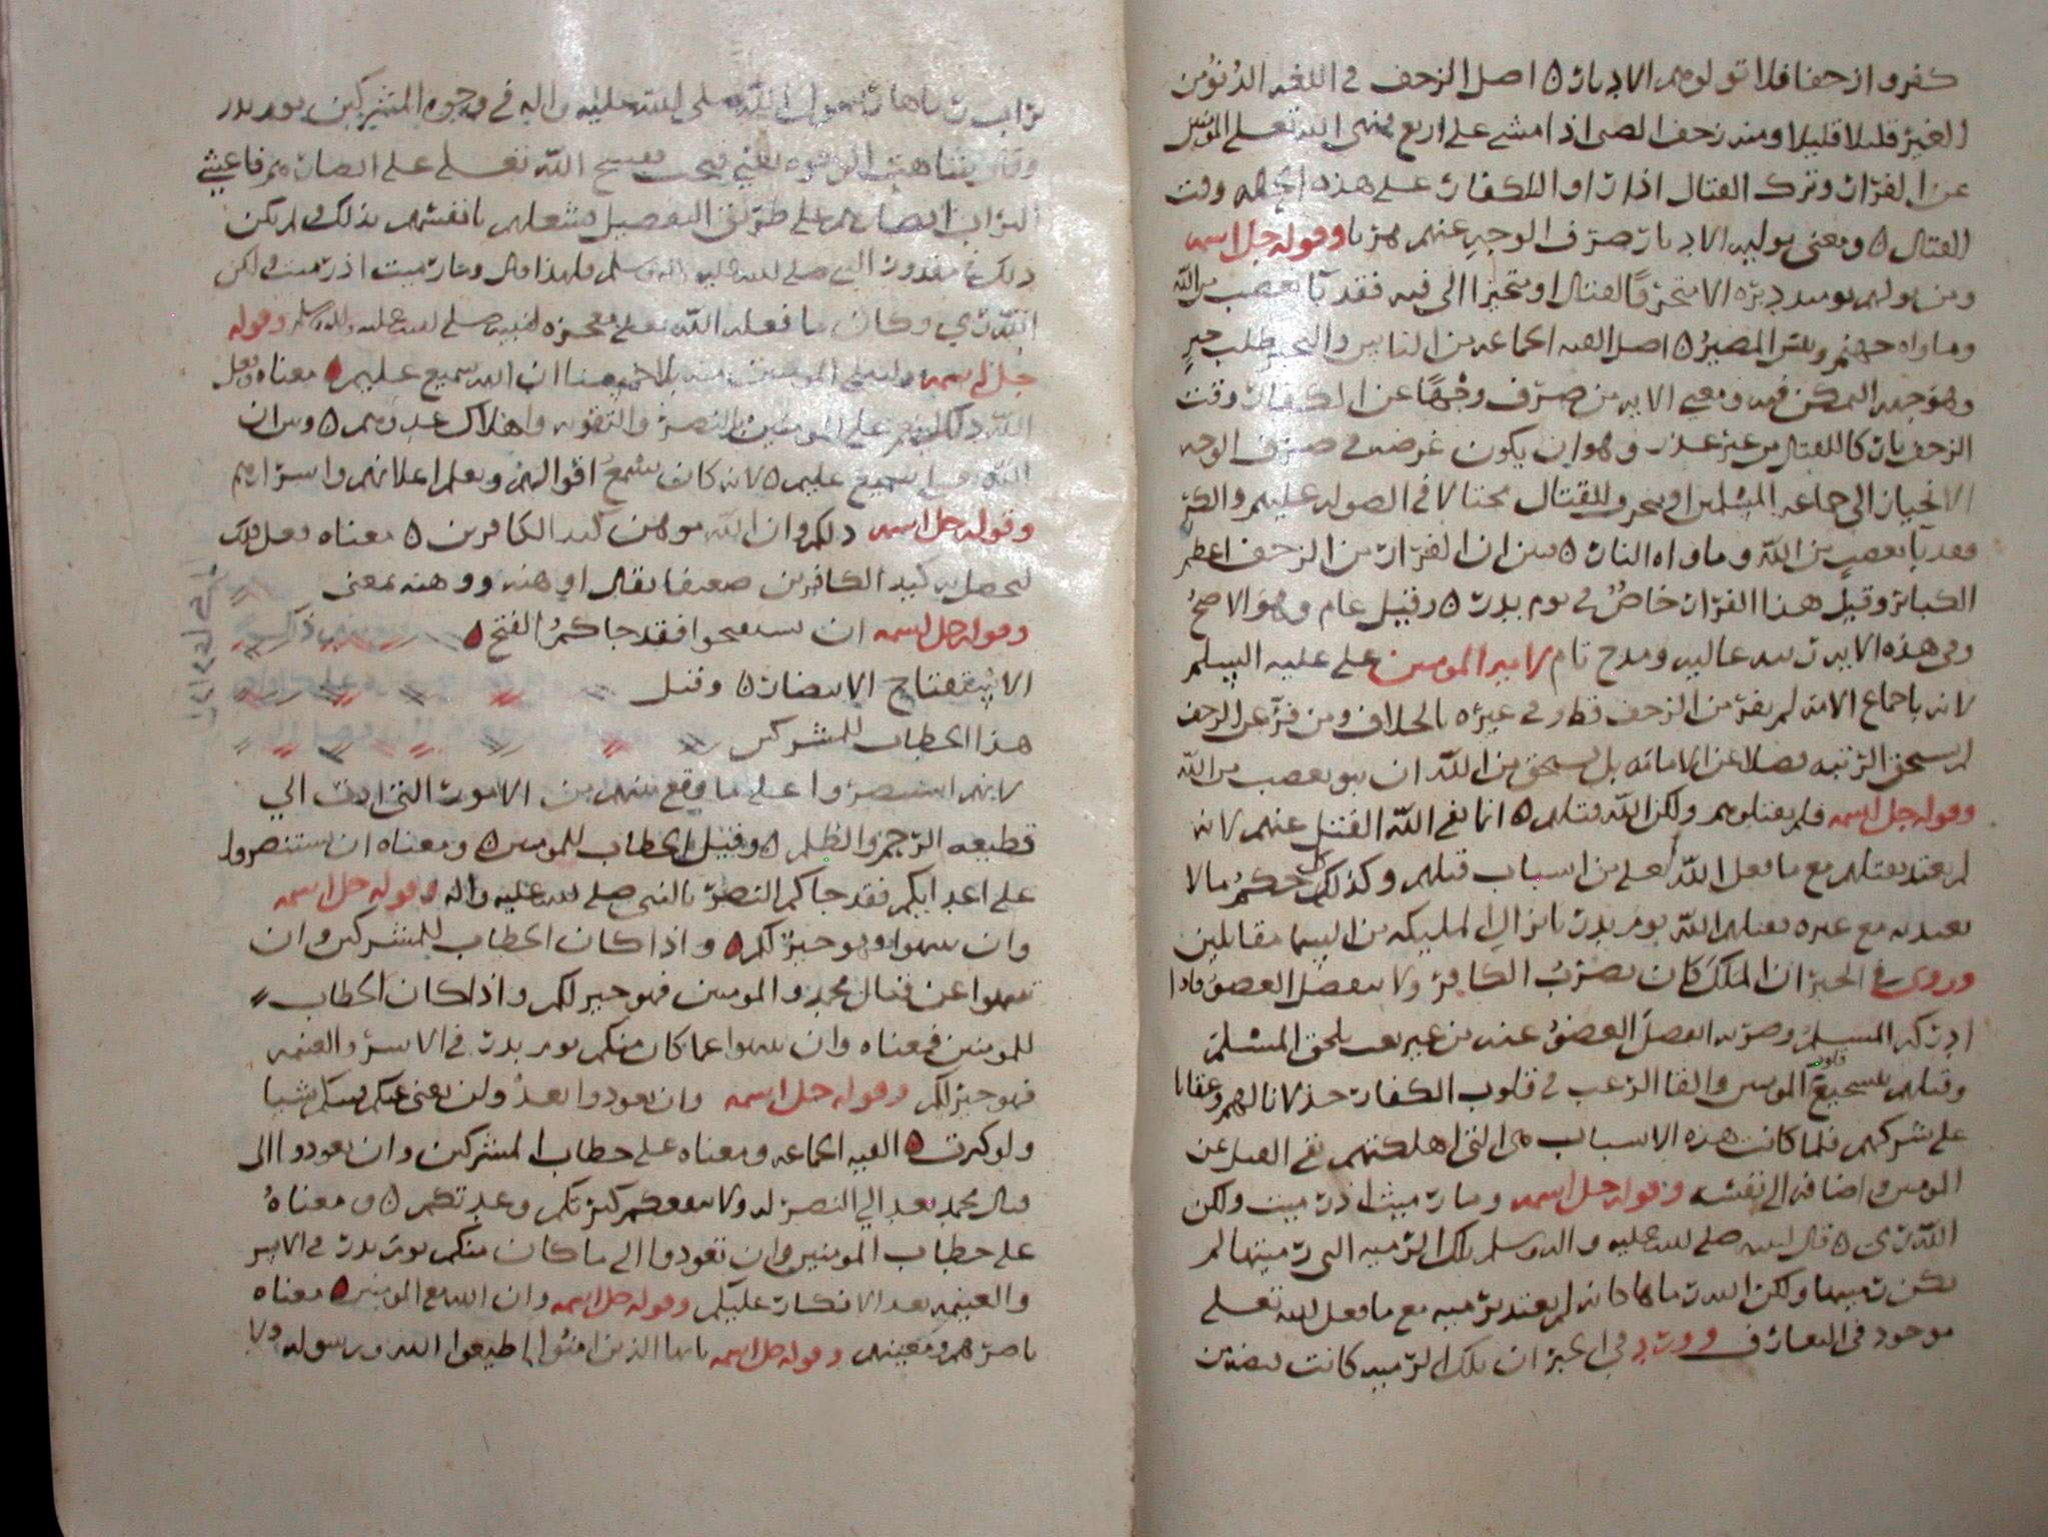 كفروا زحفا فلا تولوهم الادبار ٥ اصل الزحف في اللغه الدنو من
الغير قليلا قليلا ومنه زحف الصبي اذا مشى على اربع فنهى الله تعلى المومنين
عن الفرار وترك القتال اذا راوا الكفار على هذه الجمله وقت
القتال ٥ ومعنى توليه الادبار صرف الوجه عنهم هربا وقوله جل اسمه
ومن يولهم يومئذ دبره الا متحرفا لقتال او متحيزا الى فيه فقد با بغضب من الله
وماواه جهنم وبئس المصير ٥ اصل الفيه الجماعه من الناس والتحيز طلب حيز
وهو جهه التمكن فيه ومعنى الايه من صرف وجهًا عن الكفار وقت
الزحف تاركا للقتال من غير عذر وهو ان يكون غرضه في صرف الوجه
الانحياز الى جماعه المسلمين او منحرف للقتال محتالا في الصوله عليهم والكر
فقد با بغضب من الله وماواه النار ٥ وبين ان الفرار من الزحف اعظم
الكبائر وقيل هذا الفرار خاصٌ في يوم بدر ٥ وقيل عام وهو الاصح
وفي هذه الايه رتبه عاليه ومدح تام لامير المومنين علي عليه السلم
لانه باجماع الامه لم يفر من الزحف قط وفي غيره بالخلاف ومن فر عن الزحف
لم يستحق الرتبه فضلا عن الامامه بل يستحق من الله ان يبو بغضب من الله
وقوله جل اسمه فلم يقتلوهم ولكن الله قتلهم ٥ انما نفى الله القتل عنهم لانه
لم يعتد بقتلهم مع ما فعل الله تعلى من اسباب قتلهم وكذلك كل حكم ما لا
يعتد به مع غيره فقتلهم الله يوم بدر بانزال المليكه من السما مقاتلين
وروي في الخبر ان الملك كان يضرب الكافر ولا ينفصل العضو فاذا
ادركه المسلم وضربه انفصل العضو عنه من غير تعب يلحق المسلم
وقتلهم بتشجيع قلوب المومنين والقا الرعب في قلوب الكفار خذلانا لهم وعقابا
على شركهم فلما كانت هذه الاسباب هي التي اهلكتهم نفى القتل عن
المومنين واضافه الى نفسه وقوله جل اسمه وما رميت اذ رميت ولكن
الله رمى ٥ قال لنبيه صلى الله عليه واله وسلم تلك الرميه التي رميتها لم
تكن رميتها ولكن الله رماها لانه لم يعتد برميه مع ما فعل الله تعلى
موجود في التعارف وورد في الخبر ان تلك الرميه كانت قبضه من
تراب رماها رسول الله صلى الله عليه واله في وجوه المشركين يوم بدر
وقال شاهت الوجوه يعني قبحت فقسم الله تعلى على ابصارهم فاعشى
التراب ابصارهم على طريق التفصيل فشغلهم بانفسهم بذلك ولم يكن
ذلك في مقدور النبي صلى الله عليه واله وسلم فلهذا قال وما رميت اذ رميت ولكن
الله رمي وكان ما فعله الله تعلى معجزه لنبيه صلى الله عليه واله وسلم وقوله
جل اسمه وليبلي المومنين منه بلا حسنا ان الله سميع عليم ٥ معناه فعل
الله ذلك لينعم على المومنين بالنصر والتقويه واهلاك عدوهم ٥ وبين ان
الله تعلى سميع عليم ٥ لانه كان يسمع اقوالهم ويعلم اعلانهم واسرارهم
وقوله جل اسمه ذلكم وان الله موهن كيد الكافرين ٥ معناه فعل ذلك
ليحصل به كيد الكافرين ضعيفا يقال اوهنه ووهنه بمعنى
وقوله جل اسمه ان تستفتحوا فقد جاكمُ الفتح ٥
الاستفتاح الانتصار ٥ وقيل
هذا الخطاب للمشركين
لانهم استنصروا على ما وقع منهم من الامور التي ادت الي
قطيعه الرحم والظلم ٥ وقيل الخطاب للمومنين ٥ ومعناه ان تستنصروا
على اعدايكم فقد جاكم النصر بالنبي صلى الله عليه واله وقوله جل اسمه
وان تنتهوا فهو خير لكم ٥ واذا كان الخطاب للمشركين وان
تنتهوا عن قتال محمد والمومنين فهو خير لكم واذا كان الخطاب
للمومنين فمعناه وان تنتهوا عما كان منكم يوم بدر في الاسر والغنيمه
فهو خير لكم وقوله جل اسمه وان تعودوا نعد ولن تغني عنكم فيتكم شيا
ولو كثرت ٥ الفيه الجماعه ومعناه على خطاب المشركين وان تعودوا الى
قتال محمد نعد الي النصر له ولا تنفعكم كثرتكم وعدتكم ٥ ومعناهُ
على خطاب المومنين وان تعودوا الى ما كان منكم يوم بدر في الاسر
والغنيمه نعد الانكار عليكم وقوله جل اسمه وان الله مع المومنين ٥ معناه
ناصرهم ومعينهم وقوله جل اسمه يايها الذين امنوا اطيعوا الله ورسوله ولا